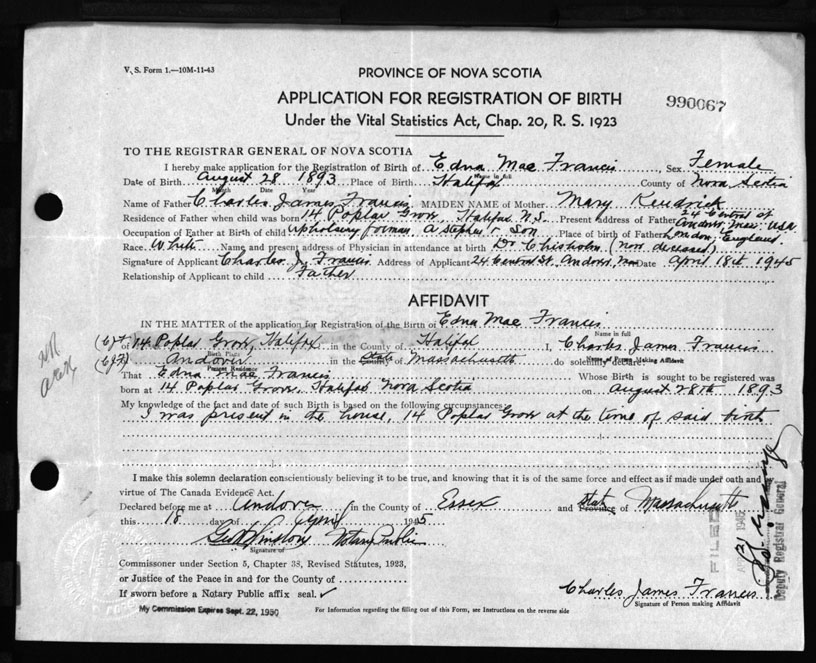 V. S. Form 1.—10M-11-43
PROVINCE OF NOVA SCOTIA
APPLICATION FOR REGISTRATION OF BIRTH
990067
Under the Vital Statistics Act, Chap. 20, R. S. 1923
TO THE REGISTRAR GENERAL OF NOVA SCOTIA
I hereby make application for the Registration of Birth of Edna Mae Francis Sex Female
Name in full
Date of Birth August 28 1893 Place of Birth Halifax County of Nova Scotia
Month Date Year
Name of Father Charles James Francis MAIDEN NAME of Mother Mary Kendrick
Residence of Father when child was born 14 Poplar Grove, Halifax N.S. Present address of Father 24 Central St Andover, Mass USA
Occupation of Father at Birth of child Upholstery foreman A Stephen & Son Place of birth of Father London, England
Race White Name and present address of Physician in attendance at birth Dr Chisholm (now deceased)
Signature of Applicant Charles J. Francis Address of Applicant 24 Central St. Andover, Date April 18th 1945
Relationship of Applicant to child Father
AFFIDAVIT
IN THE MATTER of the application for Registration of the Birth of Edna Mae Francis
Name in full
of 14 Poplar Grove, Halifax in the County of Halifax I, Charles James Francis
Birth Place Name of Person Making Affidavit
(CJF) Andover in the State Massachusetts do solemnly declare:
Present Residence
That Edna Mae Francis Whose Birth is sought to be registered was
born at 14 Poplar Grove, Halifax Nova Scotia on August 28th 1893
My knowledge of the fact and date of such Birth is based on the following circumstances:
I was present in the house, 14 Poplar Grove at the time of said birth
I make this solemn declaration conscientiously believing it to be true, and knowing that it is of the same force and effect as if made under oath and
virtue of The Canada Evidence Act.
Declared before me at Andover in the County of Essex and State Province of Massachusetts
this 18 day of April 1945
Winslow Notary Public
Signature of
Commissoner under Section 5, Chapter 38, Revised Statutes, 1923,
or Justice of the Peace in and for the County of
If sworn before a Notary Public affix seal. ✓
My Commission Expires Sept. 22, 1950
For Information regarding the filling out of this Form, see Instructions on the reverse side
Charles James Francis
Signature of Person making Affidavit
FILED
Deputy Registrar General